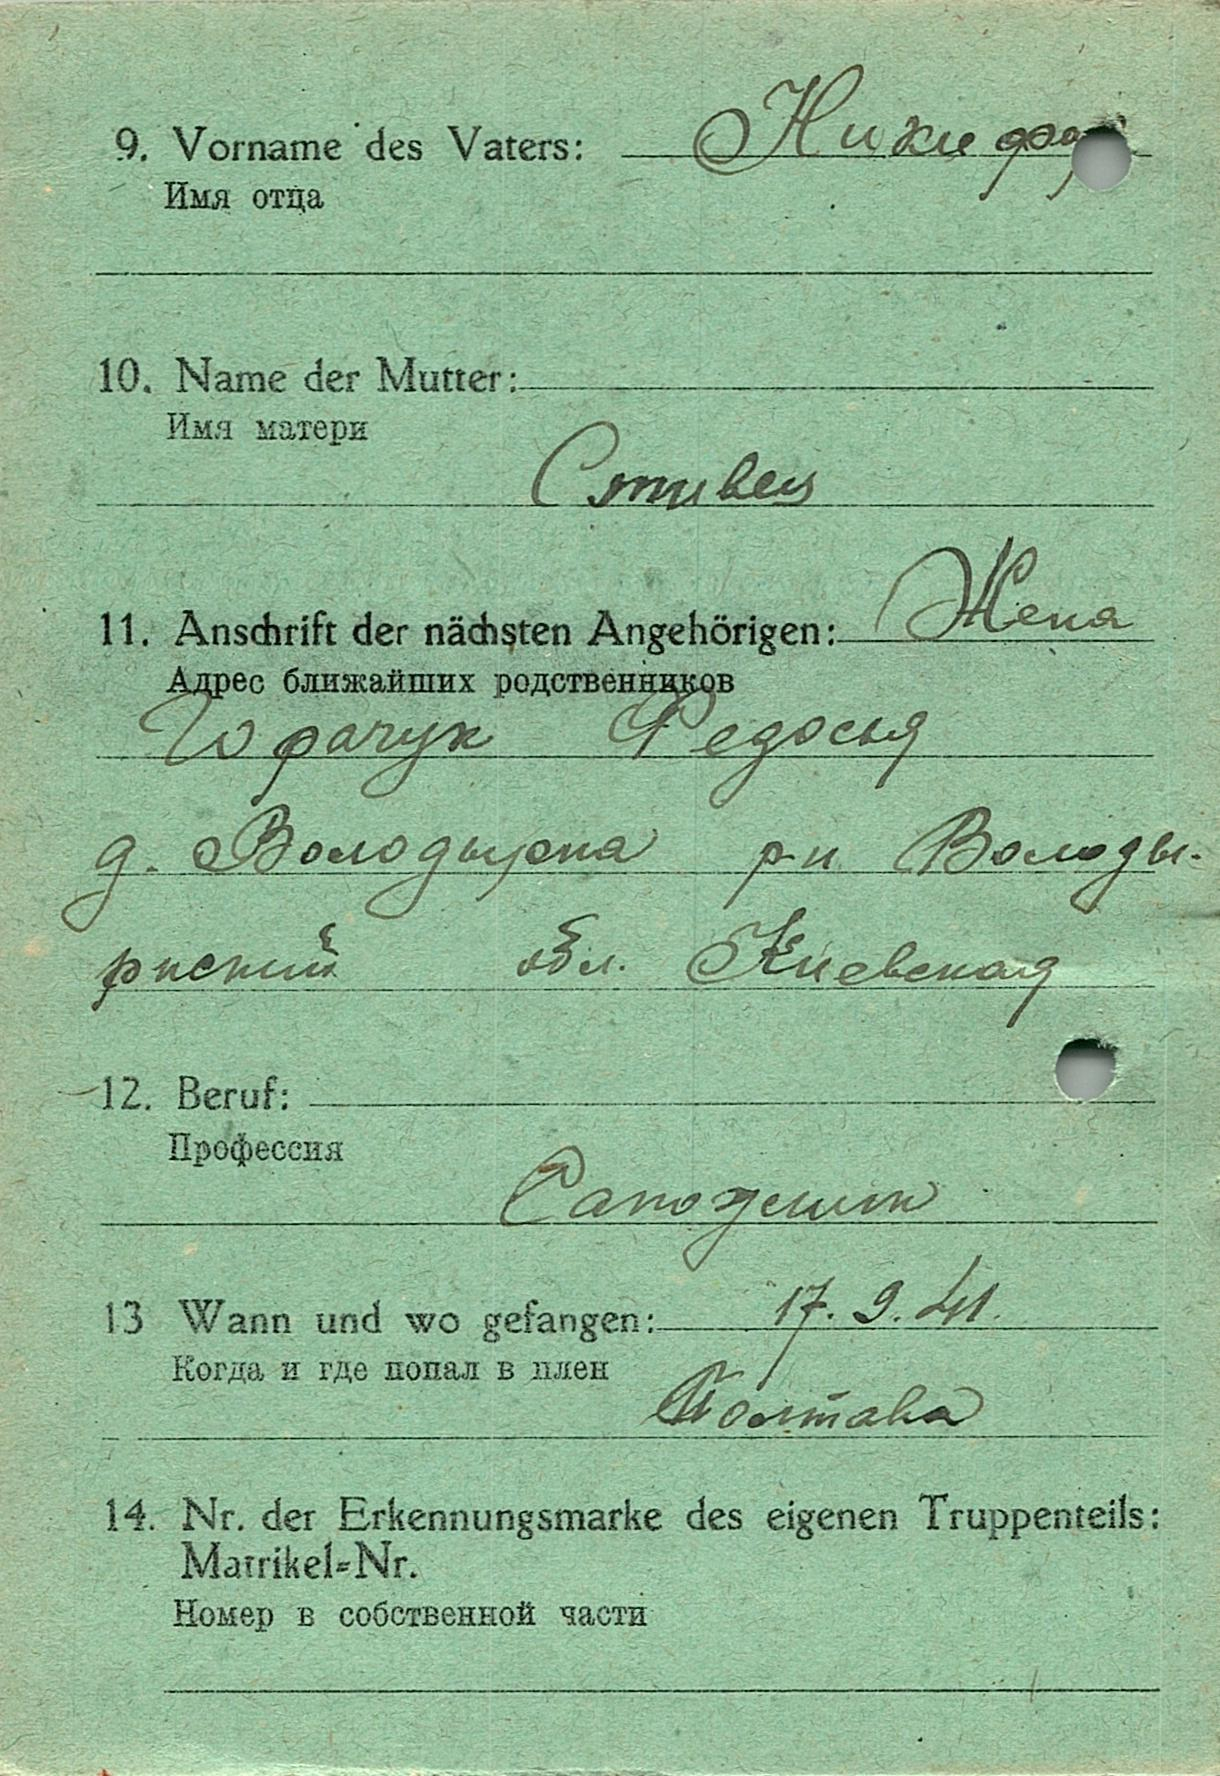 9. Vorname des Vaters: Никифор
Имя отца
10. Name der Mutter:
Имя матери
11. Anschrift der nächsten Angehörigen: Жена
Адрес ближайших родственников
Юрачук Федосья
д. Володырка р-н Володы-
рский обл. Киевская
12. Beruf:
Профессия
Сапожник
13 Wann und wo gefangen: 17. 9. 41.
Когда и где попал в плен
Полтава
14. Nr. der Erkennungsmarke des eigenen Truppenteils:
Matrikel-Nr.
Номер в собственной части